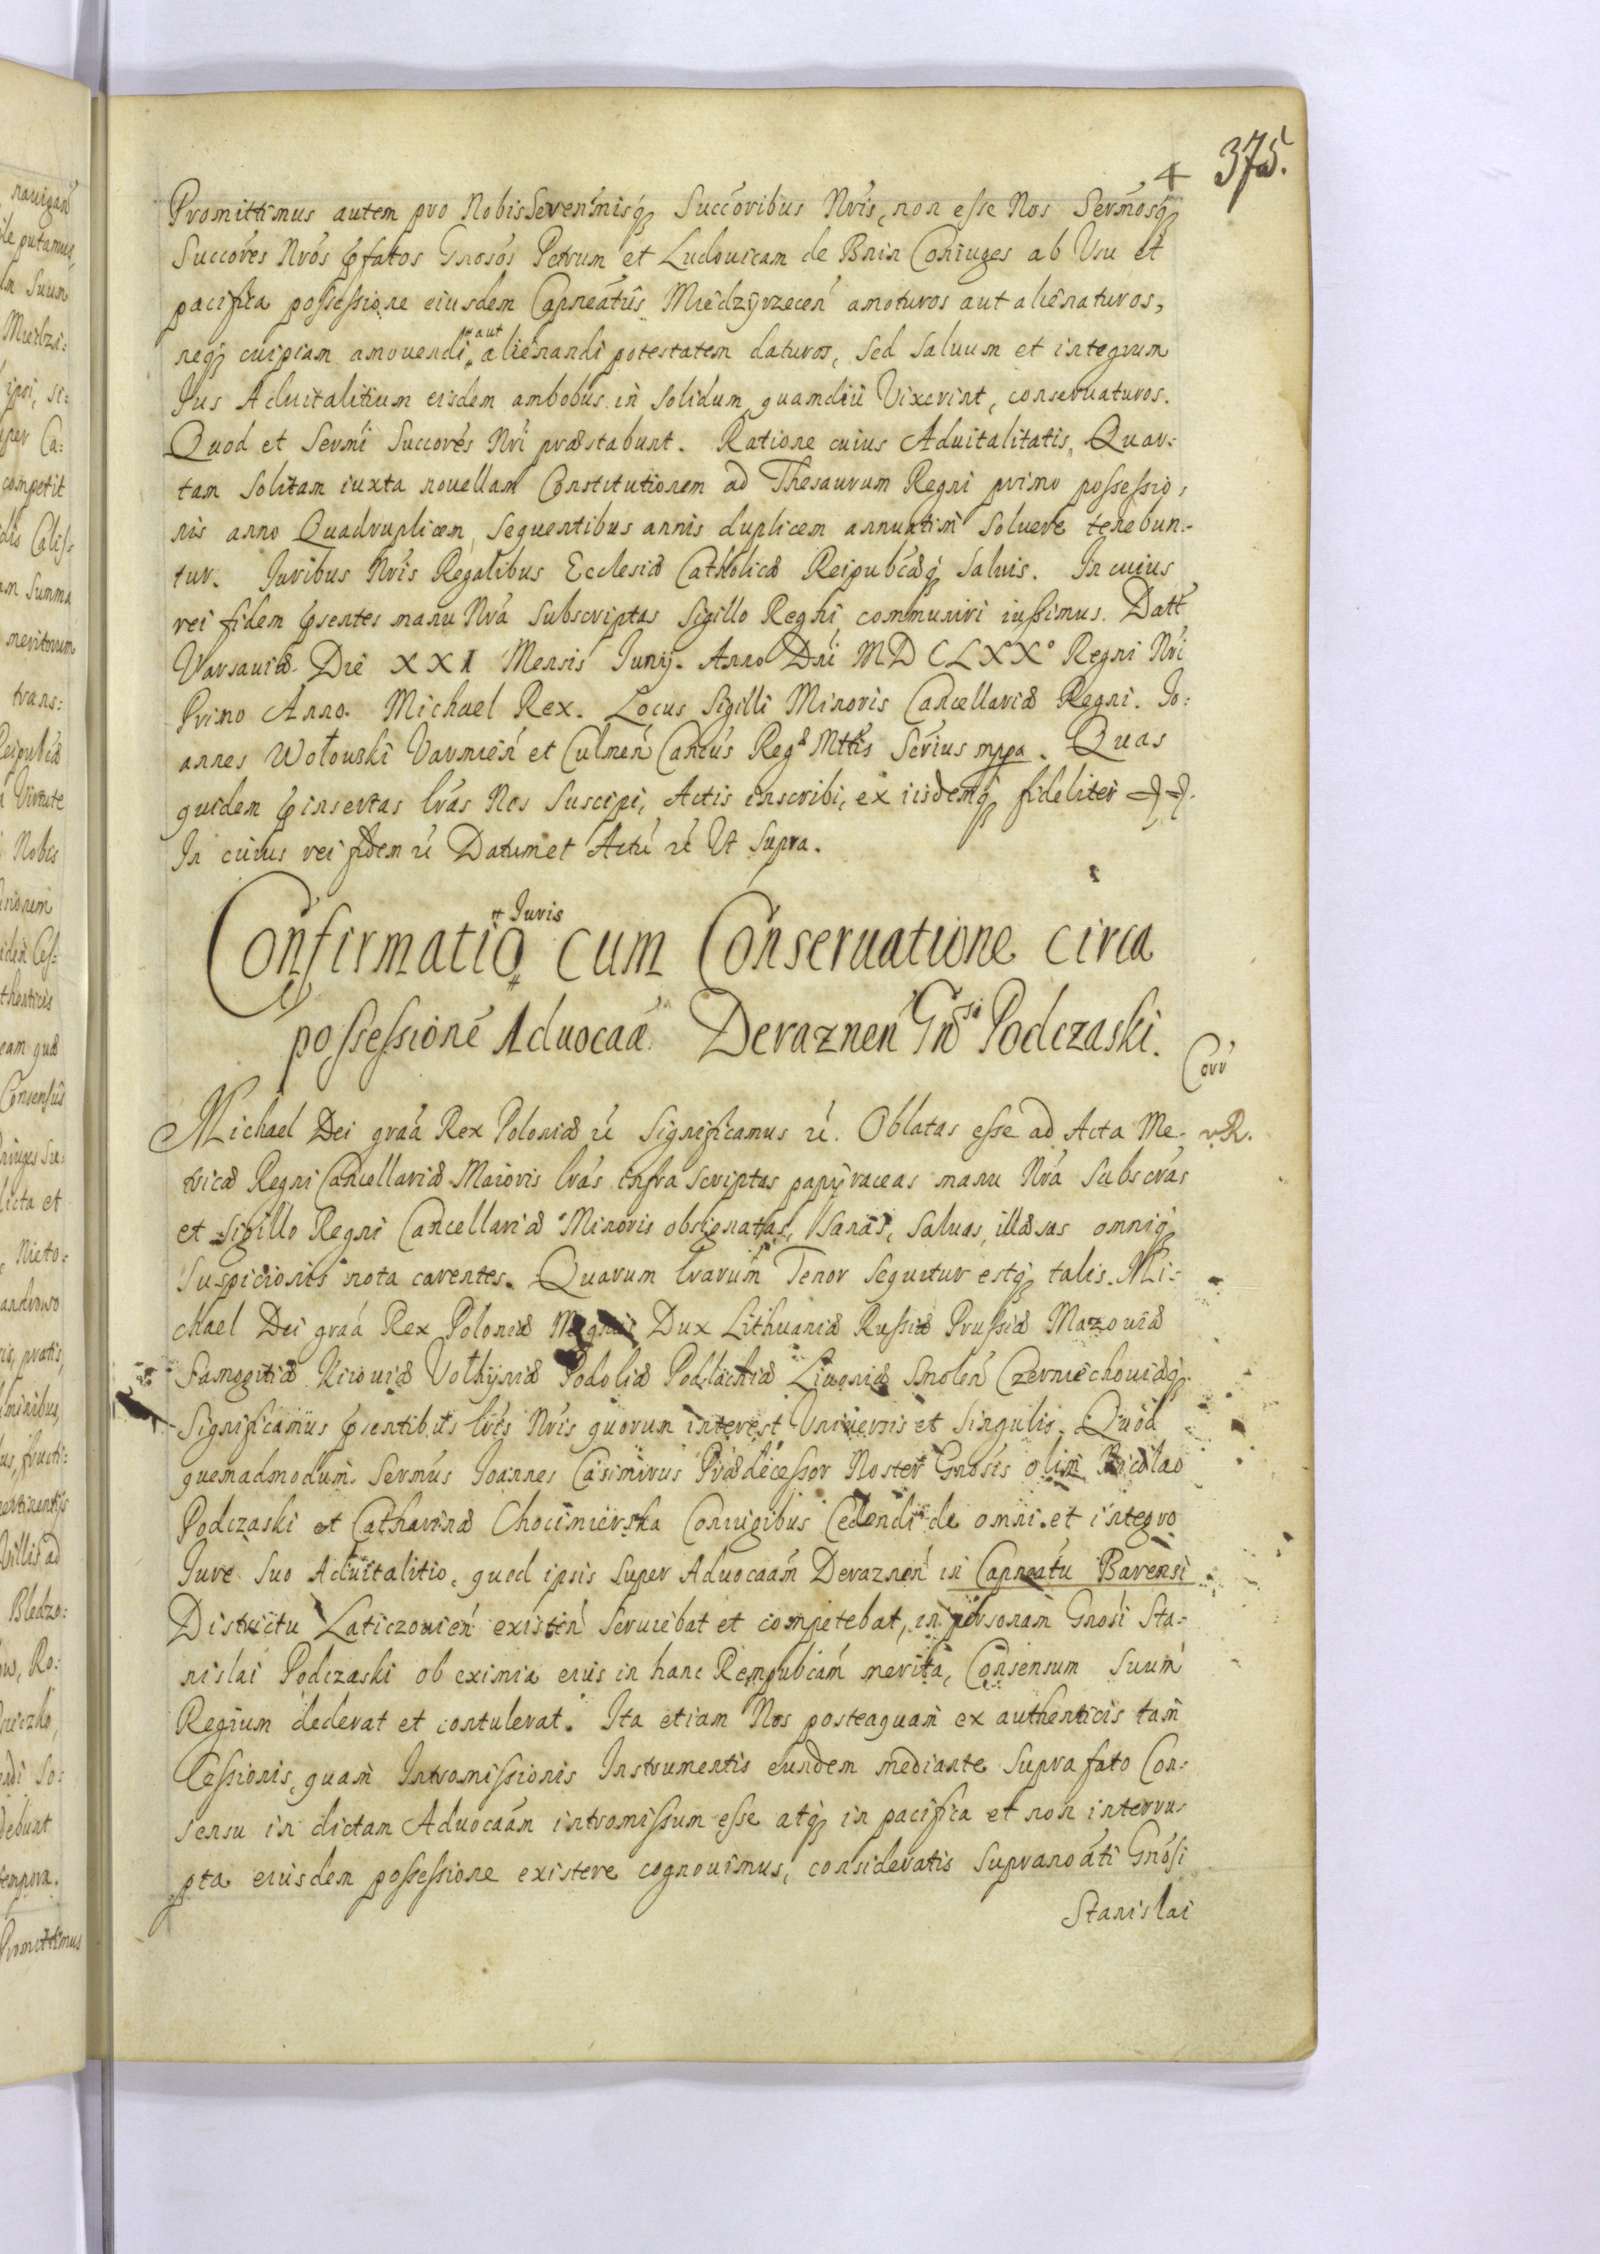 4 375.
Promittimus autem pro Nobis Seren̄misq3 Succōribus Nr̄is, non esse Nos Serm̄osq3
Succōres Nr̄os p̄fatos Gnōsos Petrum et Ludouicam de Bnin Coniuges ab Usu et
pacifica possessione eiusdem Capn̄eatus Miedzyrzecen̄ amoturos aut alienaturos,
neq3 cuipiam amouendi aut alienandi potestatem daturos, sed saluum et integrum
Jus Aduitalitium eisdem ambobus in solidum quamdiu Vixerint, conseruaturos.
Quod et Serm̄i Succōres Nr̄i præstabunt. Ratione cuius Aduitalitatis, Quar-
tam solitam iuxta nouellam Constitutionem ad Thesaurum Regni primo possessio-
nis anno Quadruplicem, sequentibus annis duplicem annuatim soluere tenebun-
tur. Juribus Nr̄is Regalibus Ecclesiæ Catholicæ Reipubc̄æq3 saluis. In cuius
rei fidem p̄sentes manu Nr̄a subscriptas Sigillo Regni communiri iussimus. Datt̄
Varsauiæ Die XXI Mensis Junij. Anno Dn̄i MDCLXX° Regni Nr̄i
Primo Anno. Michael Rex. Locus Sigilli Minoris Cancellariæ Regni. Jo:
annes Wołowski Varmien̄ et Culmen̄ Cancūs Regæ Mttis Sērius mppa. Quas
quidem p̄insertas lr̄as Nos suscipi, Actis inscribi, ex iisdemq3 fideliter
In cuius rei fidem ꝛc̄ Datum et Actū ꝛc̄ Ut supra.
Confirmatio Juris cum Conseruatione circa
possessionē Aduocaā Deraznen̄ Gn̄si Podczaski.
Corr̄
Michael Dei graā Rex Poloniæ ꝛc̄ Significamus ꝛc̄. Oblatas esse ad Acta Me- vR.
tricæ Regni Cancellariæ Maioris lr̄as infra scriptas papyraceas manu Nr̄a subscr̄as
et sigillo Regni Cancellariæ Minoris obsignatas, sanas, saluas, illæsas omniq3
suspicionis nota carentes. Quarum lr̄arum Tenor sequitur estq3 talis. Mi-
chael Dei graā Rex Poloniæ Magnus Dux Lithuaniæ Russiæ Prussiæ Mazouiæ
Samogitiæ Kiiouiæ Volhyniæ Podoliæ Podlachiæ Liuoniæ Smolen̄ Czerniechouiæq3.
Significamus p̄sentibus lr̄is Nr̄is quorum interest Uniuersis et singulis. Quod
quemadmodum Serm̄us Joannes Casimirus Prædecessor Noster Gnōsis olim Nicolao
Podczaski et Catharinæ Chocimierska Coniugibus Cedendi de omni et integro
Jure suo Aduitalitio, quod ipsis super Aduocaām Deraznen̄ in Capn̄eatu Barensi
Districtu Laticzouien̄ existen̄ seruiebat et competebat, in personam Gnōsi Sta-
nislai Podczaski ob eximia eius in hanc Rempubc̄am merita, Consensum suum
Regium dederat et contulerat. Ita etiam Nos posteaquam ex authenticis tam
Cessionis, quam Intromissionis Instrumentis eundem mediante supra fato Con-
sensu in dictam Aduocaām intromissum esse atq3 in pacifica et non interru-
pta eiusdem possessione existere cognouimus, consideratis supranoāti Gnōsi
Stanislai